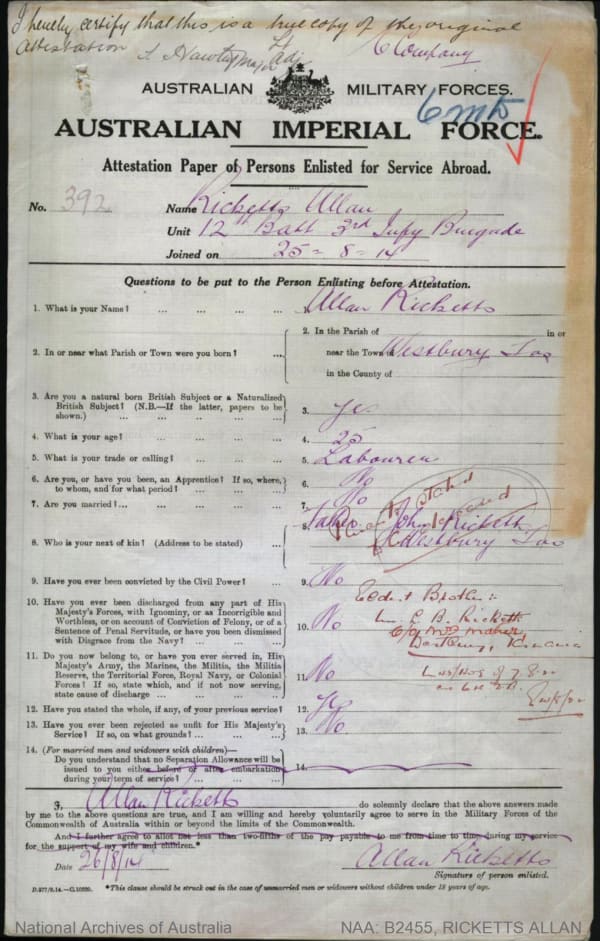 I hereby certify that this is a true copy of the original
attestation
C Company
AUSTRALIAN MILITARY FORCES.
AUSTRALIAN IMPERIAL FORCE.
Attestation Paper of Persons Enlisted for Service Abroad.
No. 392
Name Ricketts Allan
Unit 12 Batt 3rd Infy Brigade
Joined on 25-8-14
Questions to be put to the Person Enlisting before Attestation.
1. What is your Name? ... ... ... ... Allan Ricketts
2. In or near what Parish or Town were you born? ...
2. In the Parish of in or
near the Town of Westbury Tas
in the County of
3. Are you a natural born British Subject or a Naturalized
British Subject? (N.B.—If the latter, papers to be
shown.) ... ... ... ...
3. Yes
4. What is your age? ... ... ... ... 4. 25
5. What is your trade or calling? ... ... ... 5. Labourer
6. Are you, or have you been, an Apprentice? If so, where,
to whom, and for what period? ... ... ...
6. No
7. Are you married? ... ... ... ... 7. No
8. Who is your next of kin? (Address to be stated) ...
8. Father John Ricketts
Westbury Tas
deceased
9. Have you ever been convicted by the Civil Power? ... 9. No
Eldest Brother:
10. Have you ever been discharged from any part of His
Majesty's Forces, with Ignominy, or as Incorrigible and
Worthless, or on account of Conviction of Felony, or of a
Sentence of Penal Servitude, or have you been dismissed
with Disgrace from the Navy? ... ...
10. No
B. Ricketts
11. Do you now belong to, or have you ever served in, His
Majesty's Army, the Marines, the Militia, the Militia
Reserve, the Territorial Force, Royal Navy, or Colonial
Forces? If so, state which, and if not now serving,
state cause of discharge ... ... ...
11. No
12. Have you stated the whole, if any, of your previous service? 12. Yes
13. Have you ever been rejected as unfit for His Majesty's
Service? If so, on what grounds? ... ...
13. No
14. (For married men and widowers with children)—
Do you understand that no Separation Allowance will be
issued to you either before or after embarkation
during your term of service? ... ... ...
14.
I, Allan Ricketts do solemnly declare that the above answers made
by me to the above questions are true, and I am willing and hereby voluntarily agree to serve in the Military Forces of the
Commonwealth of Australia within or beyond the limits of the Commonwealth.
And I further agree to allot not less than two-fifths of the pay payable to me from time to time during my service
for the support of my wife and children.*
Date 26/8/14 Allan Ricketts
Signature of person enlisted.
*This clause should be struck out in the case of unmarried men or widowers without children under 18 years of age.
National Archives of Australia NAA: B2455, RICKETTS ALLAN